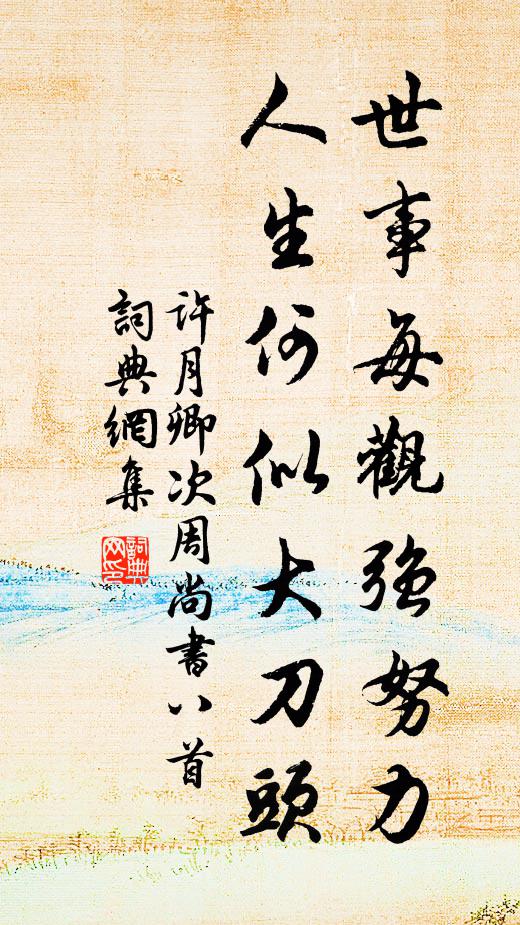 世事每觀強努力
人生何似大刀頭
許月卿次周尚書八首
詞典網集
詞典网印